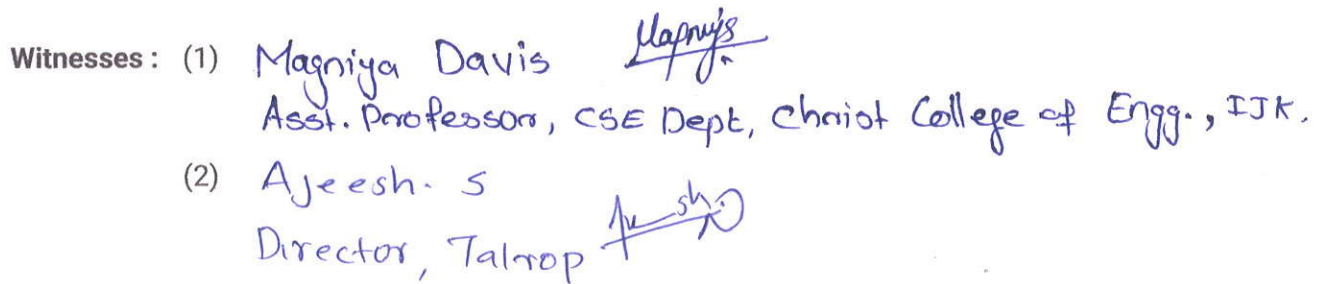 Witnesses : (1) Magniya Davis
Asst. Professor, CSE Dept, Christ College of Engg., IJK.
(2) Ajeesh. S
Director, Talrop